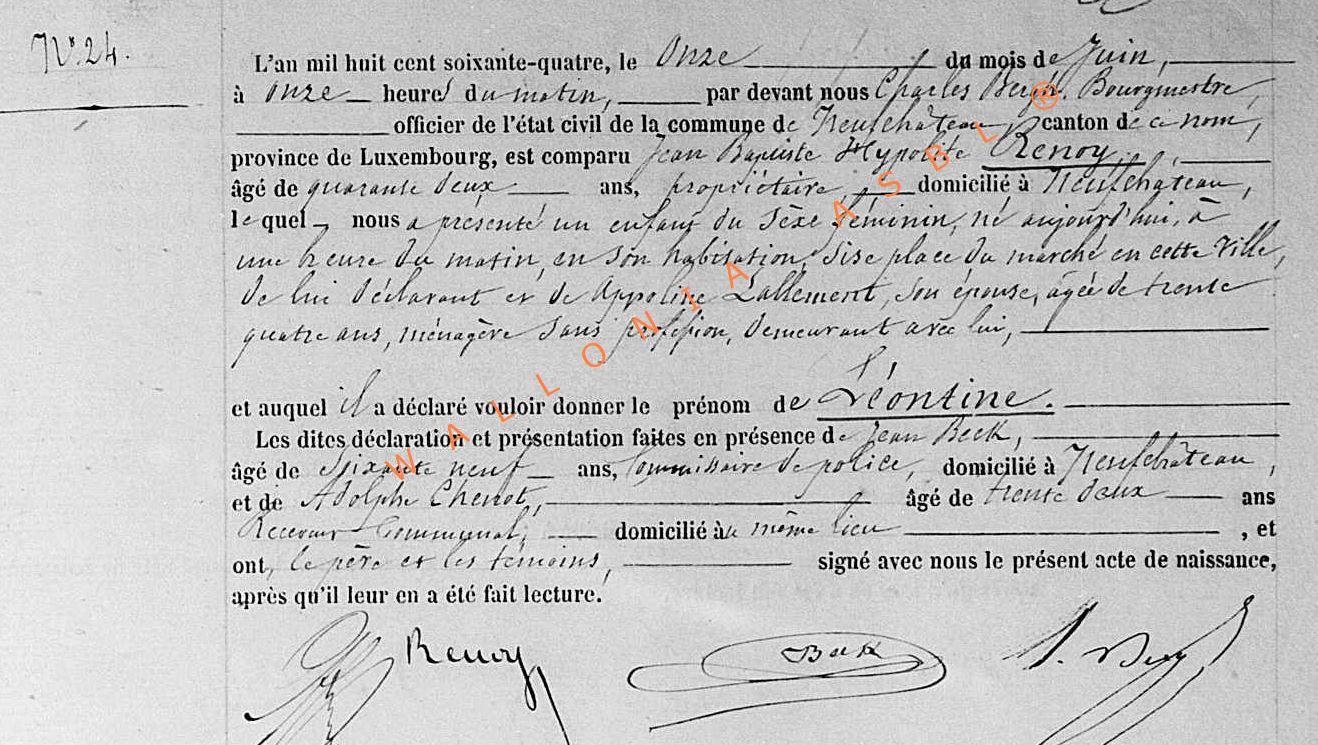 N° 24.
L'an mil huit cent soixante-quatre, le Onze du mois de Juin,
à onze heures du matin, par devant nous Charles Bourgmestre,
officier de l'état civil de la commune de Neufchâteau canton de ce nom,
province de Luxembourg, est comparu Jean Baptiste Hypolite Renoy,
âgé de quarante deux ans, propriétaire, domicilié à Neufchâteau,
lequel nous a présenté un enfant du sèxe féminin, né aujourd'hui, à
une heure du matin, en son habitation, sise place du marché en cette Ville,
de lui déclarant et de Appoline Lallement, son épouse, agée de trente
quatre ans, ménagère sans profession, demeurant avec lui,
et auquel il a déclaré vouloir donner le prénom de Léontine.
Les dites déclaration et présentation faites en présence de Jean Beck,
âgé de soixante neuf ans, Commissaire de police, domicilié à Neufchâteau,
et de Adolphe Chenot, âgé de trente deux ans
Receveur Communal, domicilié au même lieu , et
ont, le père et les témoins, signé avec nous le présent acte de naissance,
après qu'il leur en a été fait lecture.
Renoy Beck
WALLONIA ASBL ®